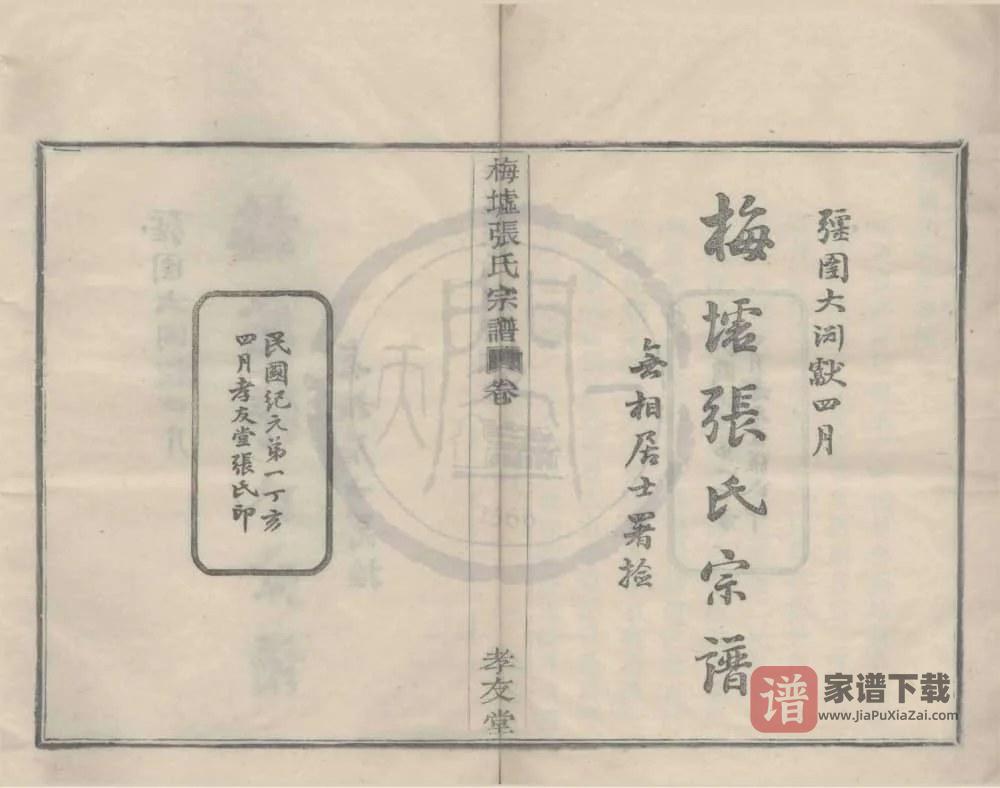 彊圉大渊獻四月
梅墟張氏宗譜
無相居士署捡
梅墟張氏宗譜
卷
孝友堂
民國紀元第一丁亥
四月孝友堂張氏印
家谱下载
www.JiaPuXiaZai.com
谱